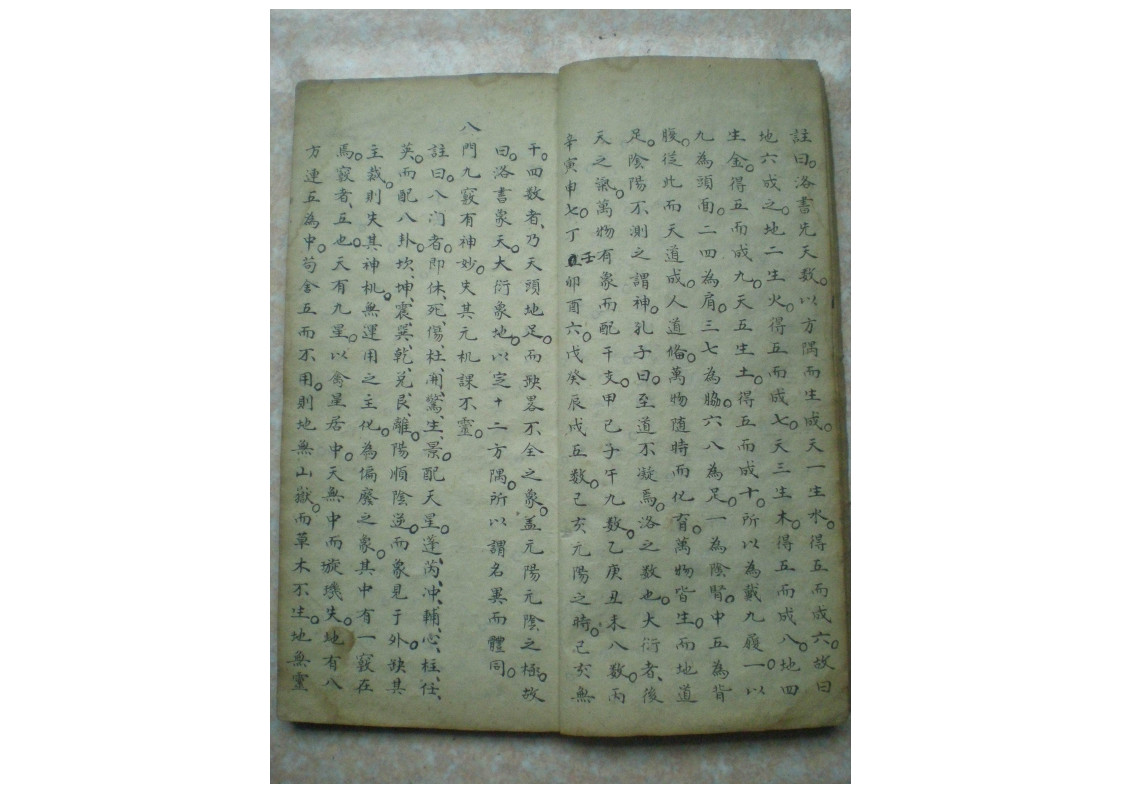 註曰。洛書先天数。以方隅而生成。天一生水。得五而成六。故曰
地六成之。地二生火。得五而成七。天三生木。得五而成八。地四
生金。得五而成九。天五生土。得五而成十。所以為戴九履一。以
九為頭面。二四為肩。三七為脇。六八為足。一為陰腎。中五為背
腹。從此而天道成。人道俻。萬物随時而化育。萬物皆生。而地道
足。陰陽不測之謂神。孔子曰。至道不凝焉。洛之数也。大衍者、後
天之氣。萬物有象而配干支。甲己子午九数。乙庚丑未八数。丙
辛寅申七。丁壬卯酉六。戊癸辰戌五数。己亥元陽之時。己亥無
干。四数者、乃天頭地足。而缺畧不全之象。盖元陽元陰之極。故
曰。洛書象天。大衍象地。以定十二方隅。所以謂名異而體同。
八門九竅有神妙。失其元机課不靈。
註曰。八门者。即休、死、傷、杜、開、驚、生、景。配天星。蓬、芮、冲、輔、心、柱、任、
英。而配八卦。坎、坤、震、巽、乾、兌、艮、離。陽順陰逆。而象見于外。缺其
主裁。則失其神机。無運用之主化。為偏廢之象。其中有一竅在
焉。竅者、五也。天有九星。以禽星居中。天無中而璇璣失。地有八
方連五為中。苟舍五而不用。則地無山嶽。而草木不生。地無靈